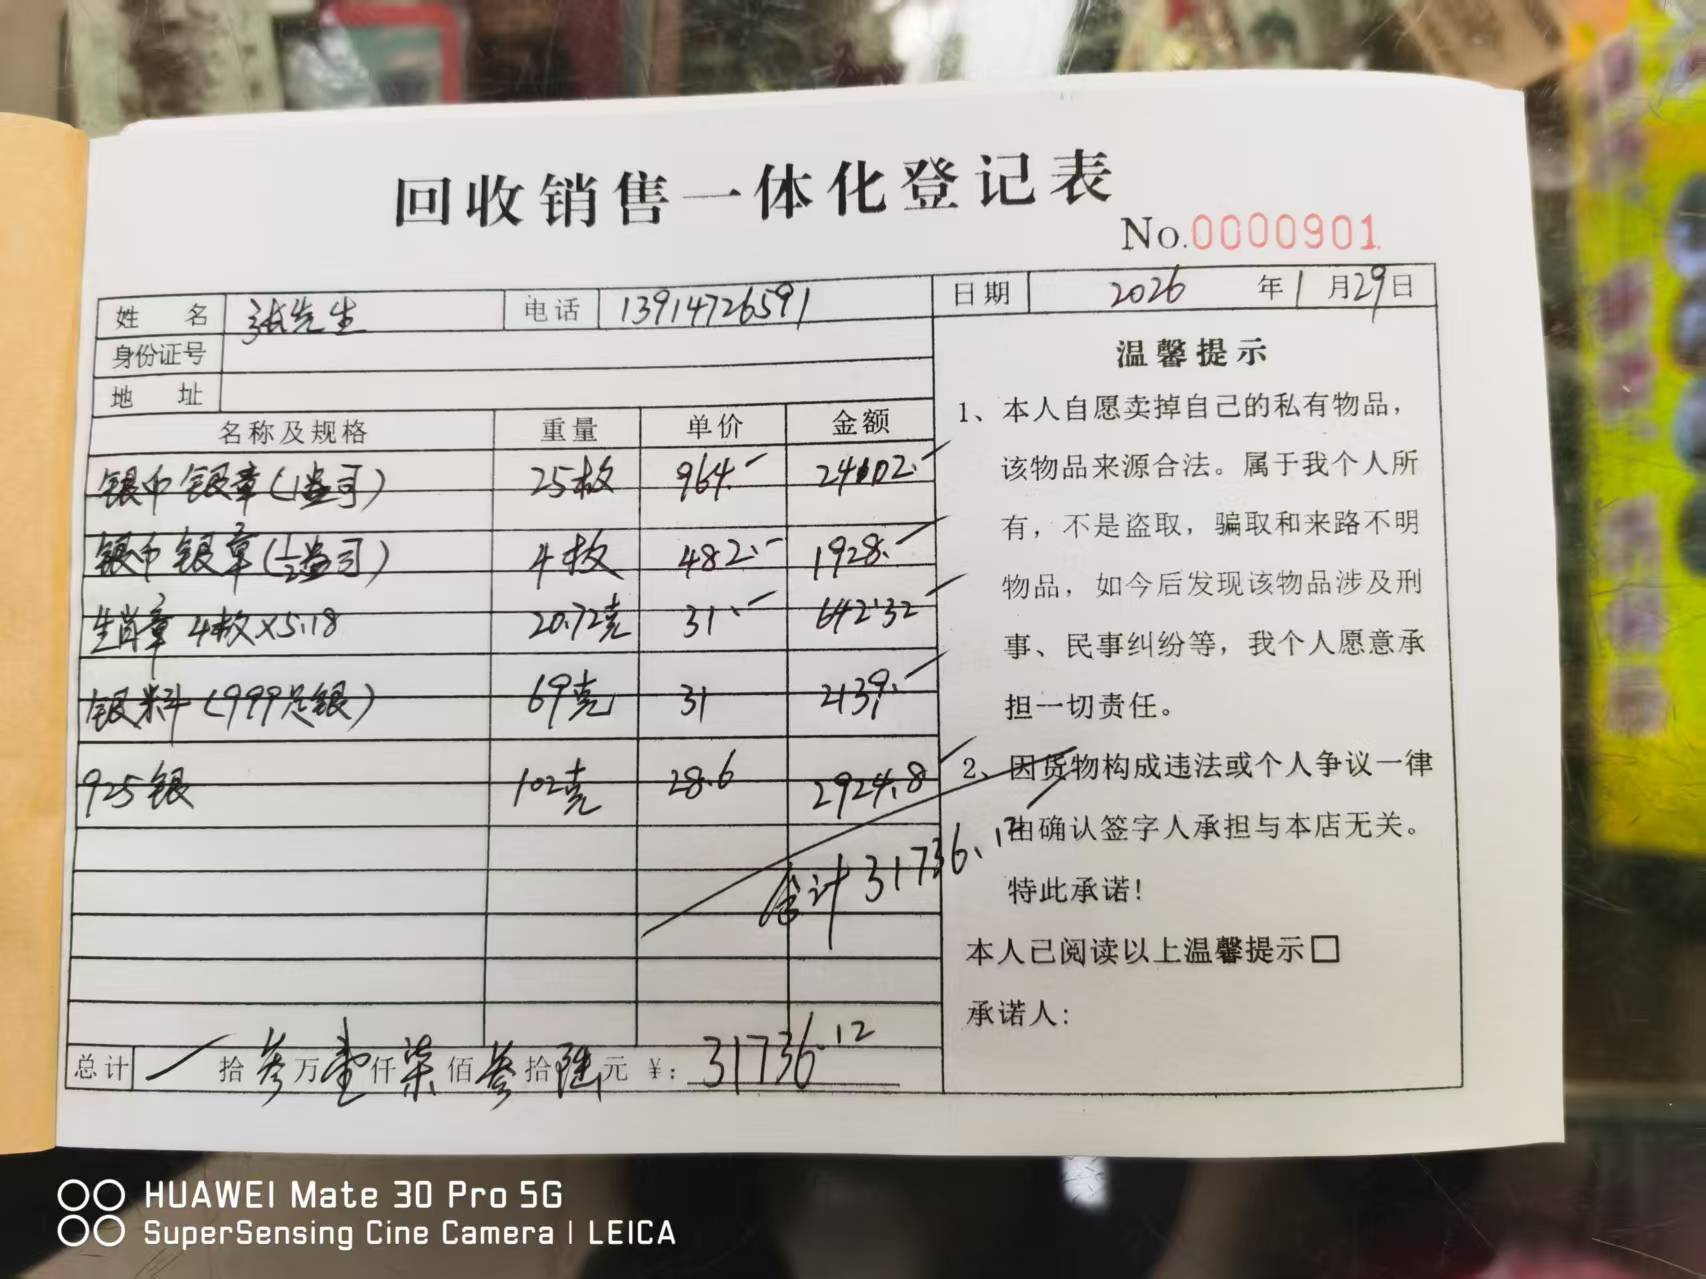 回收销售一体化登记表
No.0000901
姓 名 张先生 电话 13914726591 日期 2026 年 1 月 29 日
身份证号
地 址
名称及规格 重量 单价 金额
银币银章(1盎司) 25枚 964.- 24102.-
银币银章(½盎司) 4枚 482.- 1928.-
生肖章 4枚×5.18 20.72克 31.- 642.32
银料(999足银) 69克 31 2139.-
925银 102克 28.6 2924.8
合计 31736.12
总计 拾叁万壹仟柒佰叁拾陆元 ¥: 31736.12
温馨提示
1、本人自愿卖掉自己的私有物品,
该物品来源合法。属于我个人所
有,不是盗取,骗取和来路不明
物品,如今后发现该物品涉及刑
事、民事纠纷等,我个人愿意承
担一切责任。
2、因货物构成违法或个人争议一律
由确认签字人承担与本店无关。
特此承诺!
本人已阅读以上温馨提示□
承诺人:
HUAWEI Mate 30 Pro 5G
SuperSensing Cine Camera | LEICA